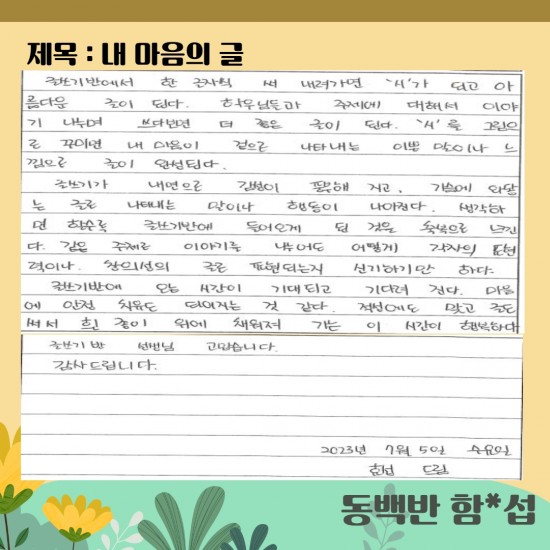 제목 : 내 마음의 글
글쓰기반에서 한 글자씩 써 내려가면 '시'가 되고 아
름다운 글이 된다. 학우님들과 주제에 대해서 이야
기 나누며 쓰다보면 더 좋은 글이 된다. '시'를 그림으
로 꾸미면 내 마음이 겉으로 나타내는 이쁜 말이나 느
낌으로 글이 완성된다.
글쓰기가 내면으로 감성이 풍부해 지고, 가슴에 와닿
는 글로 나타내는 말이나 행동이 나아진다. 생각하
면 할수록 글쓰기반에 들어오게 된 것을 축복으로 느낀
다. 같은 주제로 이야기를 나누어도 어떻게 각자의 표현
력이나 창의성의 글로 표현되는지 신기하기만 하다.
글쓰기반에 오는 시간이 기대되고 기다려 진다. 마음
에 안정 치유도 되어지는 것 같다. 적성에도 맞고 글도
써서 흰 종이 위에 채워져 가는 이 시간이 행복하다
글쓰기반 선생님 고맙습니다.
감사드립니다.
2023년 7월 5일 수요일
드림
동백반 함*섭